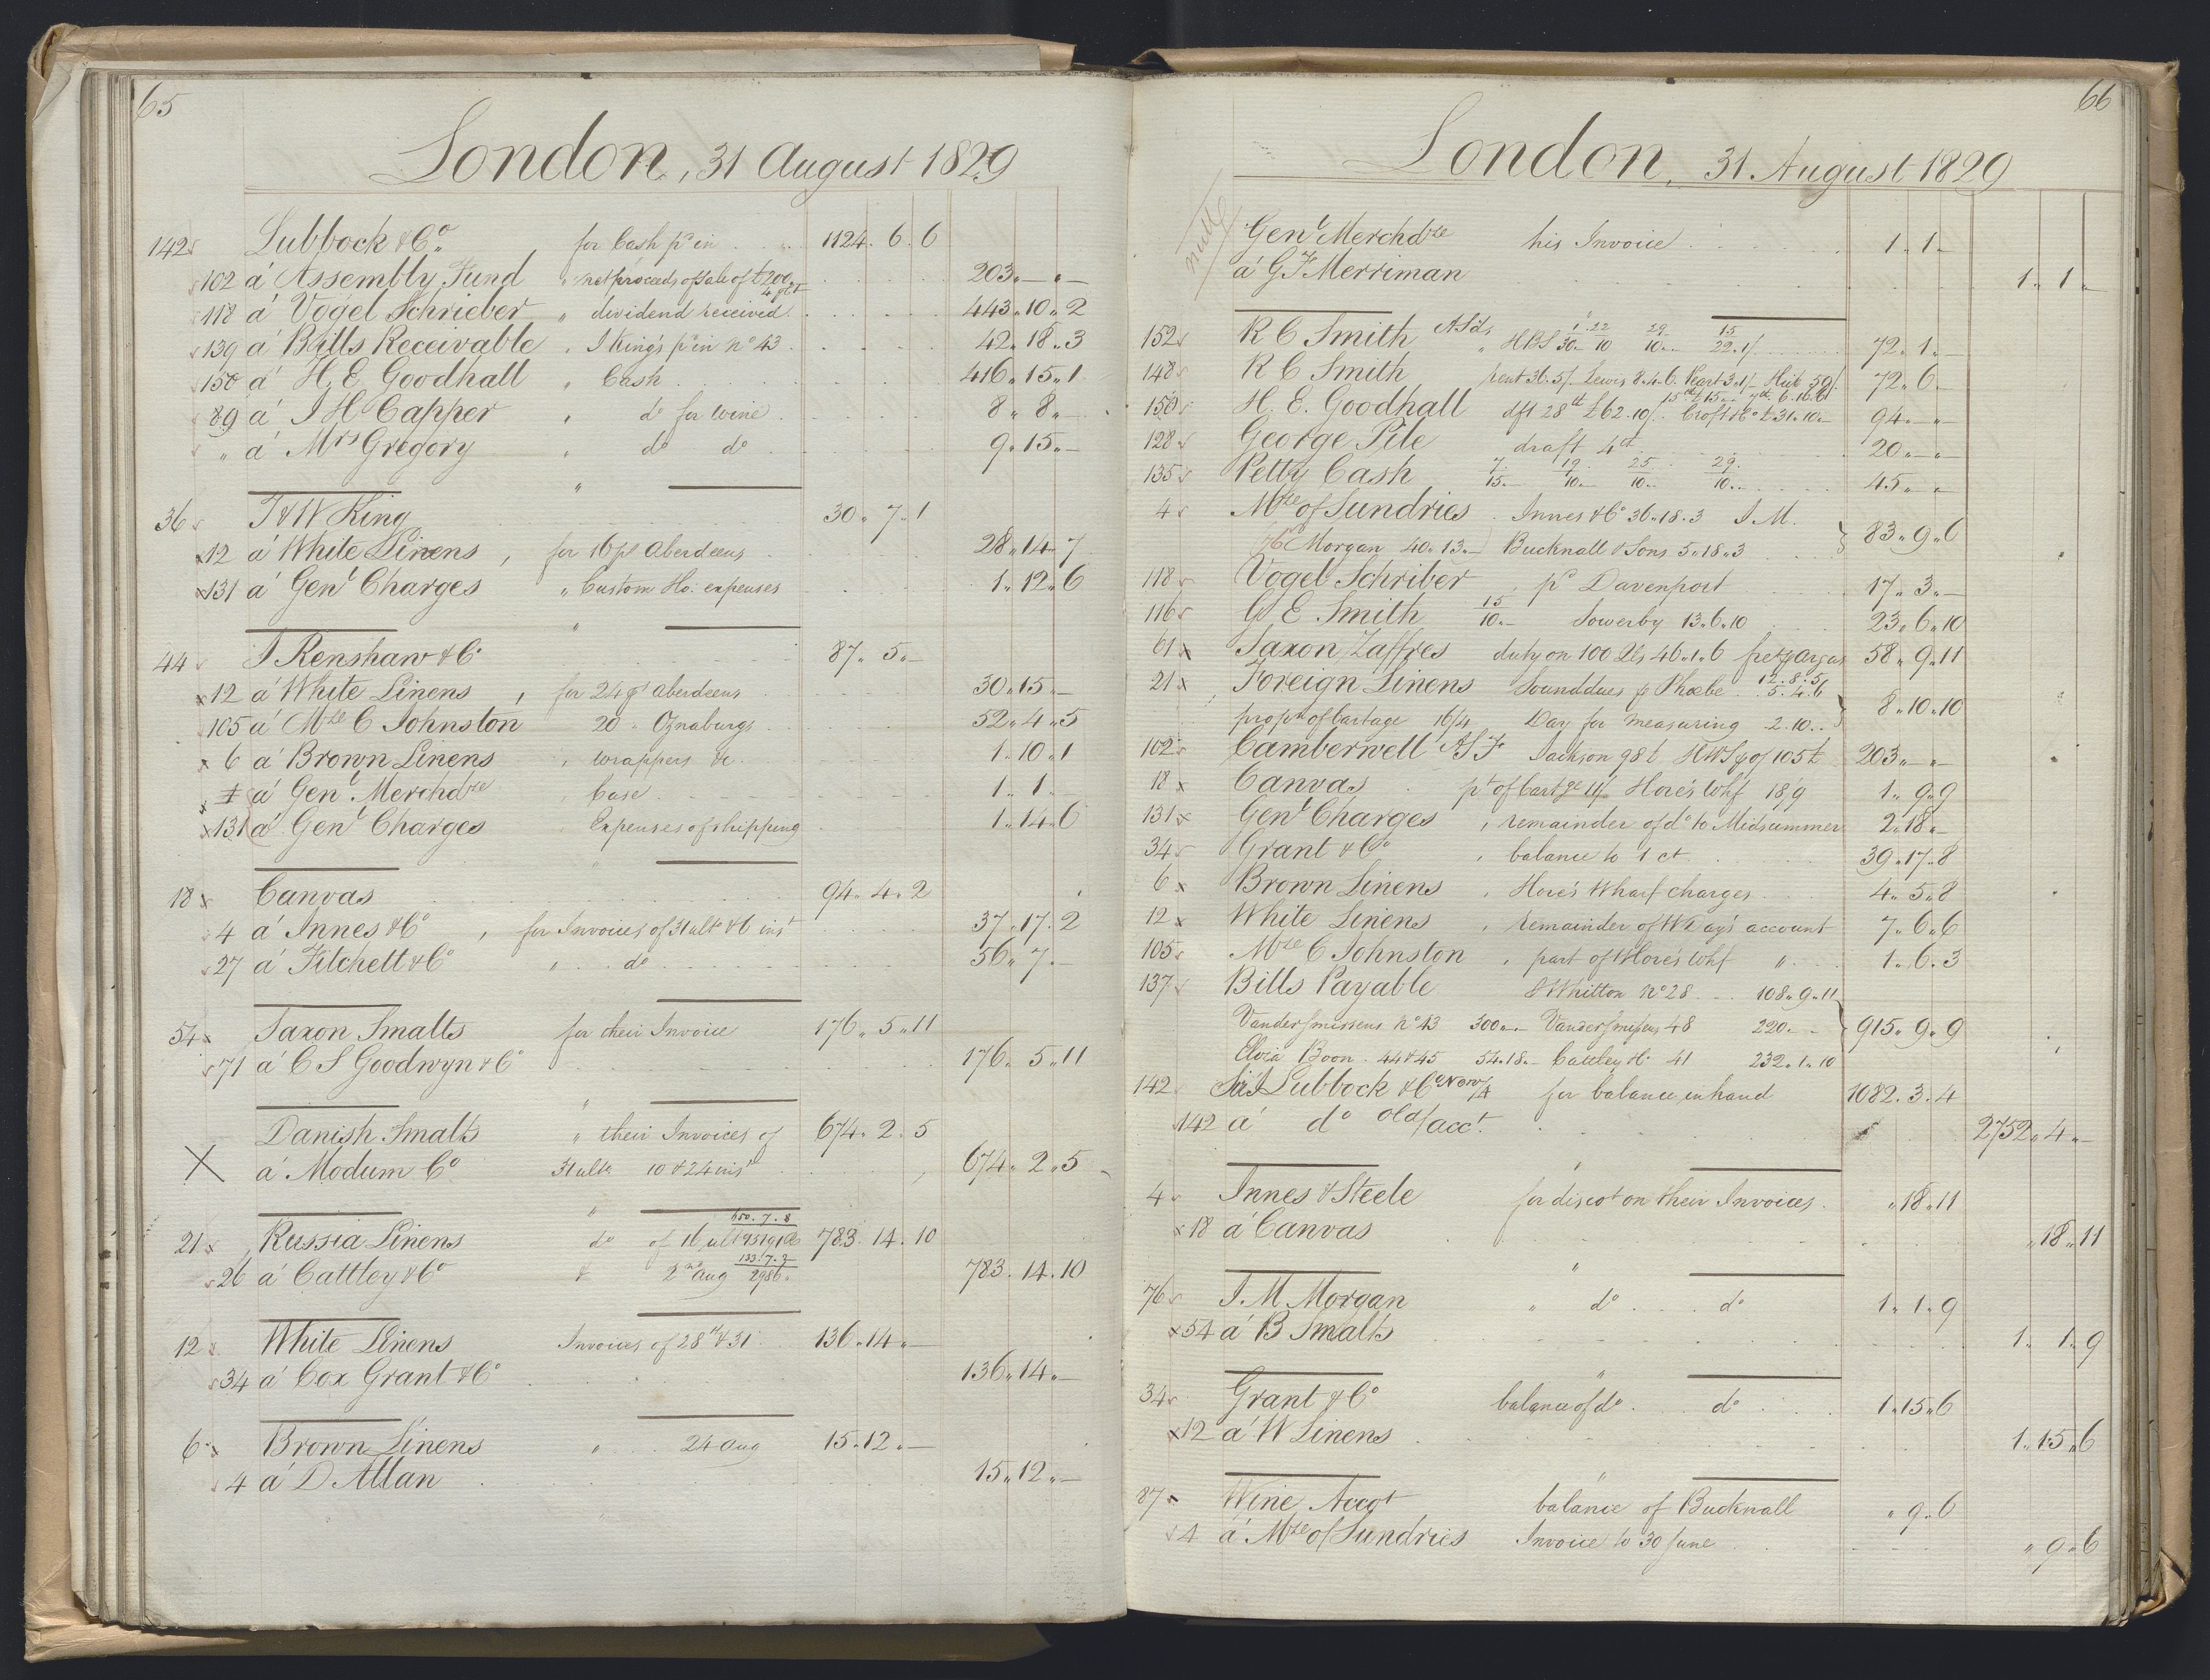 65
London, 31 August 1829
142 Lubbock & Co. for Cash pr in 1124. 6. 6
102 á Assembly Fund " net proceeds of sale of £200 203 " — " —
118 á Vogel Schrieber " dividend received 443 " 10 " 2
139 á Bills Receivable " I King's pr in No 43 42 " 18 " 3
150 á H. E Goodhall " Cash 416 " 15 " 1
89 á I H Capper " do for wine 8 " 8 " —
" á Mrs Gregory " do do 9 " 15 " —
36 I & W King 30 " 7 " 1
12 á White Linens, for 16 ps Aberdeens 28 " 14 " 7
131 á Genl Charges " Custom Ho: expenses 1 " 12 " 6
44 I Renshaw & Co 87 " 5 " —
12 á White Linens, for 24 ps Aberdeens 30 " 15 " —
105 á Mdze C Johnston 20 " Oznaburgs 52 " 4 " 5
6 á Brown Linens " wrappers &c. 1 " 10 " 1
á Genl Merchdze Case 1 " 1 " —
131 á Genl Charges Expenses of shipping 1 " 14 " 6
18 Canvas 94 " 4 " 2
4 á Innes & Co, for Invoices of 31 ult & 6 inst 37 " 17 " 2
27 á Fitchett & Co " do 56 " 7 " —
54 Saxon Smalts for their Invoice 176 " 5 " 11
71 á C S Goodwyn & Co 176 " 5 " 11
Danish Smalts " their Invoices of 674 " 2 " 5
X á Modum Co 31 ulto 10 & 24 inst 674 " 2 " 5
650 . 7 . 8
21 Russia Linens do of 16 ulto 783 . 14 . 10
133 . 7 . 2
26 á Cattley & Co & 2nd Aug 2986 783 . 14 . 10
12 White Linens Invoices of 28th & 31 136 " 14 " —
34 á Cox Grant & Co 136 " 14 " —
6 Brown Linens " 24 Aug 15 " 12 " —
4 á D Allan 15 " 12 " —
66
London, 31. August 1829
null
Genl Merchdze his Invoice 1 " 1 —
á G F Merriman 1 " 1 "
1 . 22 29 15
152 R C Smith " HBS 30 — 10 10 " 22.1/ 72 " 1 " —
148 R C Smith rent 36.5/. Lewis 8.4.6. Peart 3.1/— 72 " 6 —
150 H. E. Goodhall dft 28th £62.10/. Croft & Co £31.10 — 94 " — " —
128 George Pile draft 4 ct 20 " — " —
7 19 25 29
135 Petty Cash 15 — 10 — 10 — 10 — 45 " — " —
4 Mdze of Sundries Innes & Co 36 " 18 . 3 I. M.
76 Morgan 40 " 13 — Bucknall & Sons 5 " 18 " 3 83 " 9 " 6
118 Vogel Schriber , pr Davenport 17 " 3 " —
15
116 G E Smith 10 — Sowerby 13 " 6 " 10 23 " 6 " 10
61 Saxon Zaffres duty on 100 46 " 1 " 6 58 " 9 " 11
12 . 8 . 5
21 Foreign Linens Sounddues p Phœbe 5 . 4 . 6
propn of Cartage 16/4 Day for measuring 2 . 10 8 " 10 " 10
102 Camberwell A S F Jackson 98£ of 105£ 203 " — " —
18 Canvas pt of Cartge 11/ Hore's Whf 18/9 1 " 9 " 9
131 Genl Charges , remainder of do to Midsummer 2 " 18 " —
34 Grant & Co , balance to 1 ct 39 " 17 " 8
6 Brown Linens , Hore's Wharf charges 4 " 5 " 8
12 White Linens , remainder of W Day's account 7 " 6 " 6
105 Mdze C Johnston , part of Hore's Whf " 1 " 6 . 3
137 Bills Payable S Whitton No 28 108 " 9 " 11
Vandersmissens No 43 300 " — Vandersmissens 48 220 " — 915 " 9 " 9
Boon . 44 & 45 54 . 18 — Cattley & Co 41 232 " 1 " 10
142 Lubbock & Co New/A for balance in hand 1082 . 3 . 4
142 á do Old/acct. 2752 " 4 " —
4 Innes & Steele for discot on their Invoices " 18 " 11
18 á Canvas " 18 " 11
76 I. M. Morgan " do do 1 " 1 " 9
54 á B Smalts 1 " 1 " 9
34 Grant & Co balance of do do 1 " 15 " 6
12 á W Linens 1 " 15 " 6
87 Wine Accot balance of Bucknall " 9 " 6
4 á Mdze of Sundries Invoice to 30 June " 9 " 6